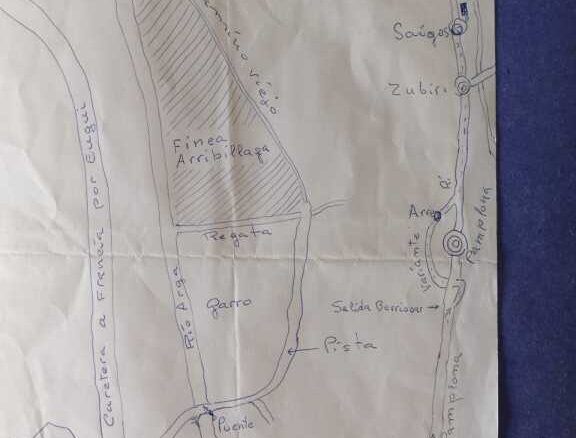 Camino viejo
Saigos
Zubiri
Finca
Arribillaga
Carretera a Francia por Eugui
Regata
Rio Arga
Garro
Variante
Pamplona
Salida Berriozar
Pista
Puente
Pamplona